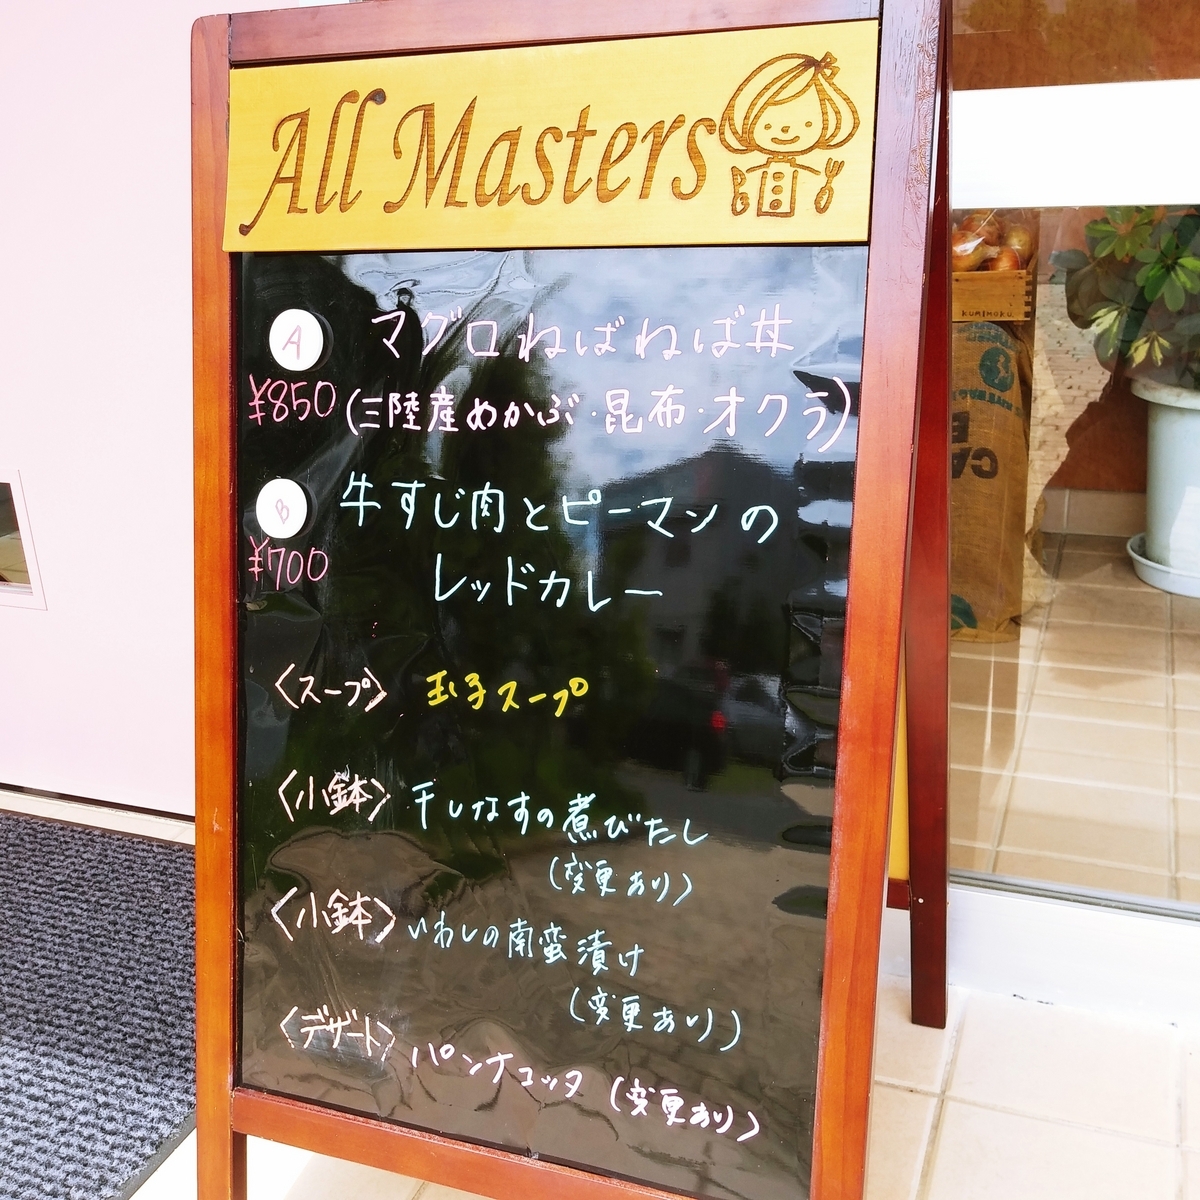 All Masters
A マグロねばねば丼
¥850 (三陸産めかぶ・昆布・オクラ)
B 牛すじ肉とピーマンの
¥700 レッドカレー
〈スープ〉 玉子スープ
〈小鉢〉 干しなすの煮びたし
(変更あり)
〈小鉢〉 いわしの南蛮漬け
(変更あり)
〈デザート〉 パンナコッタ (変更あり)
kumimoku